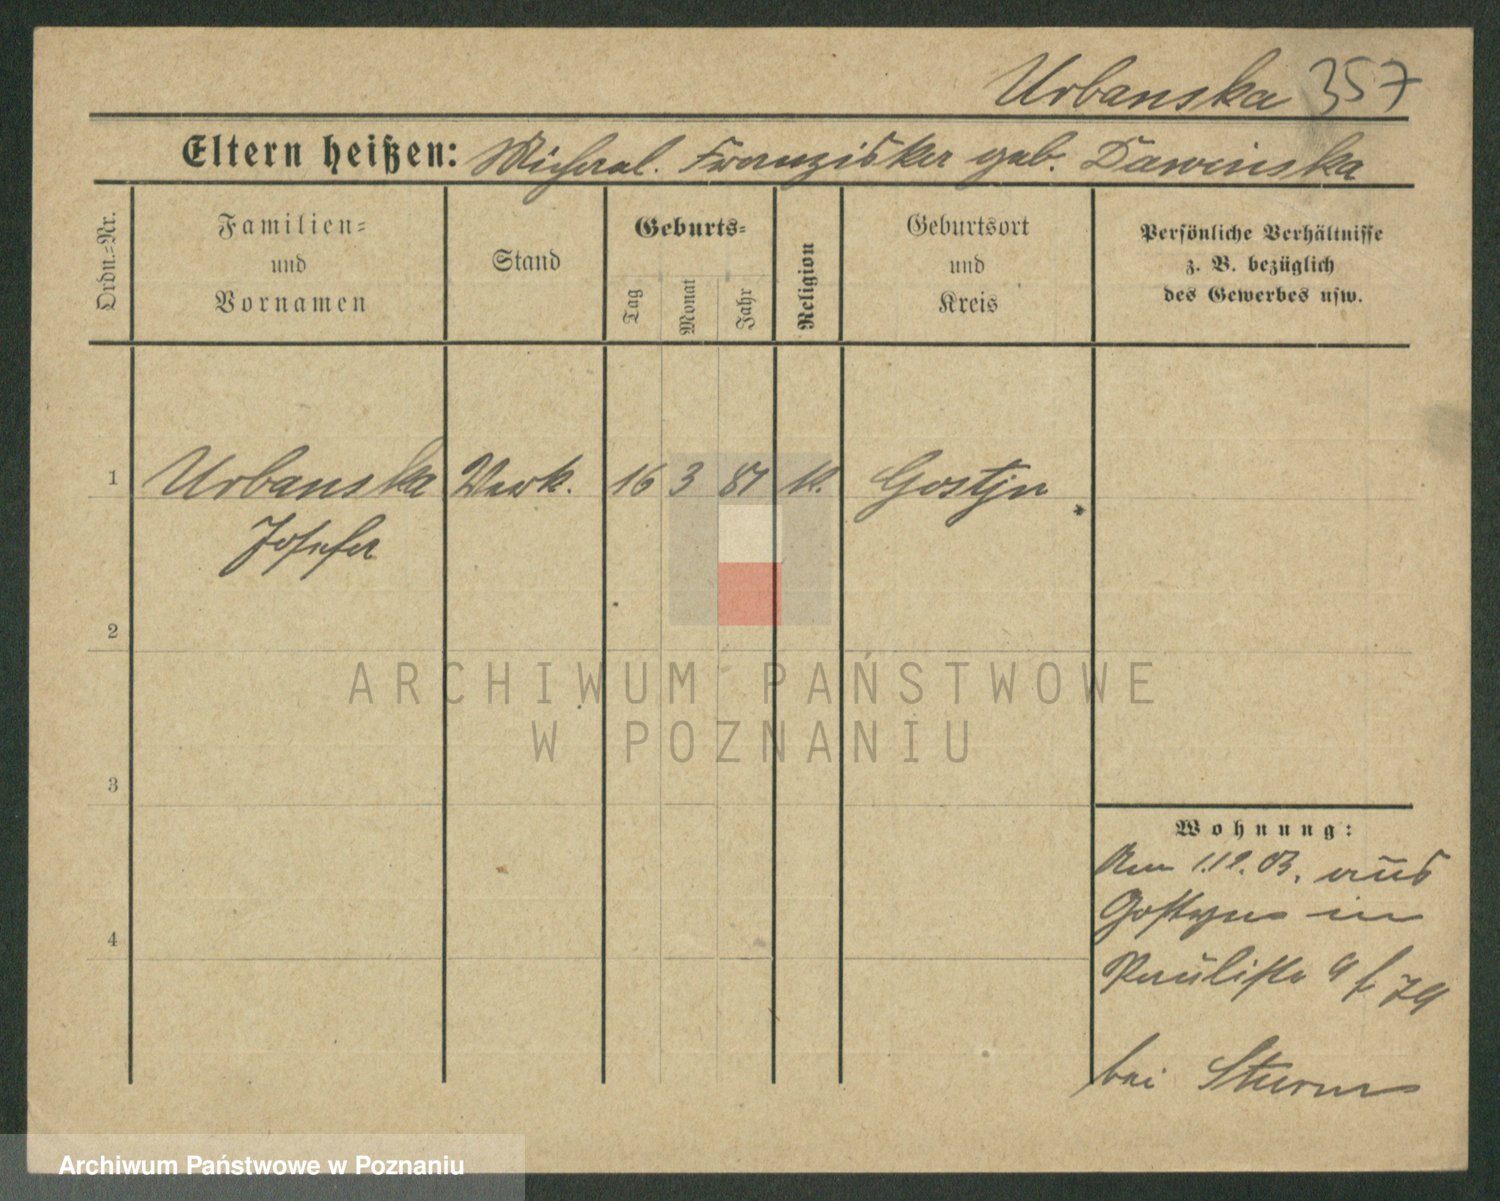 Urbanska 357
Eltern heißen: Michael. Franziska geb. Dawinska
Ordn.-Nr.
Familien-
und
Vornamen
Stand
Geburts-
Tag
Monat
Jahr
Religion
Geburtsort
und
Kreis
Persönliche Verhältnisse
z. B. bezüglich
des Gewerbes usw.
1 Urbanska Verk. 16 3 87 K. Gostyn
Josefa
2
ARCHIWUM PAŃSTWOWE
W POZNANIU
3
Wohnung:
Am 1.12.03. aus
Gostyn in
Paulistr 9
4
bei Sturm
Archiwum Państwowe w Poznaniu